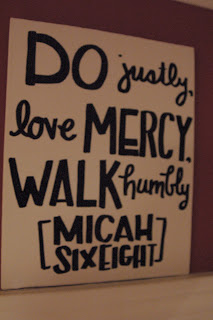 DO justly,
love MERCY,
WALK humbly
[MICAH
SIXEIGHT]